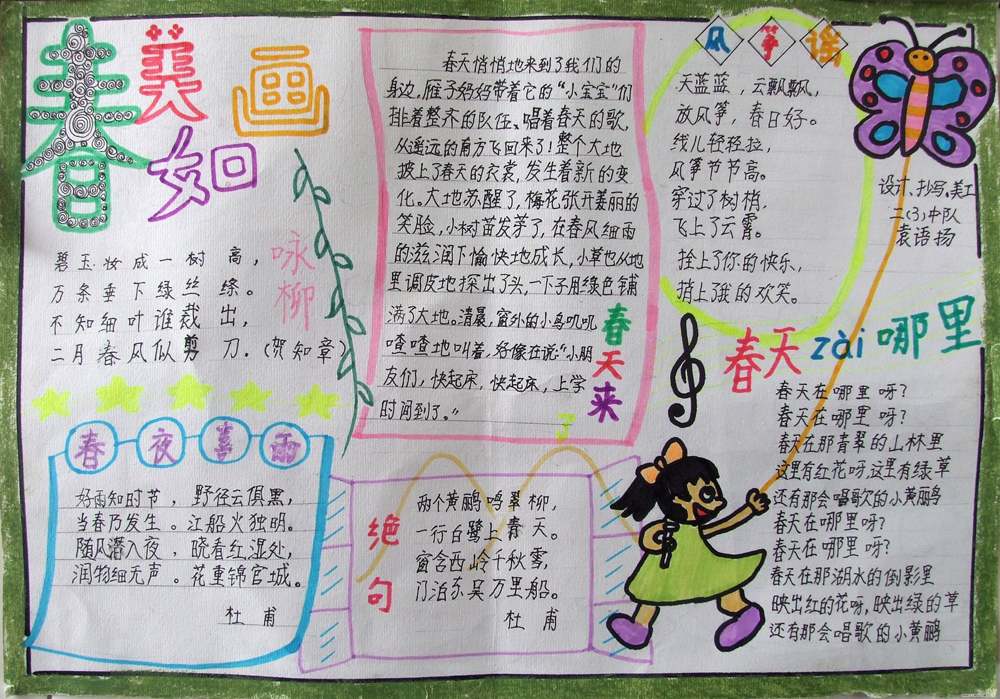 春美如画
咏柳
碧玉妆成一树高，
万条垂下绿丝绦。
不知细叶谁裁出，
二月春风似剪刀.(贺知章)
春夜喜雨
好雨知时节，野径云俱黑，
当春乃发生。江船火独明。
随风潜入夜，晓看红湿处，
润物细无声。花重锦官城。
杜甫
春天悄悄地来到了我们的
身边.雁子妈妈带着它的“小宝宝”们
排着整齐的队伍、唱着春天的歌,
从遥远的南方飞回来了!整个大地
披上了春天的衣裳,发生着新的变
化。大地苏醒了,梅花张开美丽的
笑脸,小树苗发芽了,在春风细雨
的滋润下愉快地成长,小草也从地
里调皮地探出了头,一下子用绿色铺
满了大地。清晨,窗外的小鸟叽叽
喳喳地叫着,好像在说:“小朋
友们,快起床,快起床,上学
时间到了。”
春天来了
绝句
两个黄鹂鸣翠柳,
一行白鹭上青天。
窗含西岭千秋雪,
门泊东吴万里船。
杜甫
风筝谣
天蓝蓝,云飘飘,
放风筝,春日好。
线儿轻轻拉,
风筝节节高。
穿过了树梢,
飞上了云霄。
拴上了你的快乐,
捎上了我的欢笑。
设计、抄写、美工
二(3)中队
袁语扬
春天zài哪里
春天在哪里呀?
春天在哪里呀?
春天在那青翠的山林里
这里有红花呀,这里有绿草
还有那会唱歌的小黄鹂
春天在哪里呀?
春天在哪里呀?
春天在那湖水的倒影里
映出红的花呀,映出绿的草
还有那会唱歌的小黄鹂